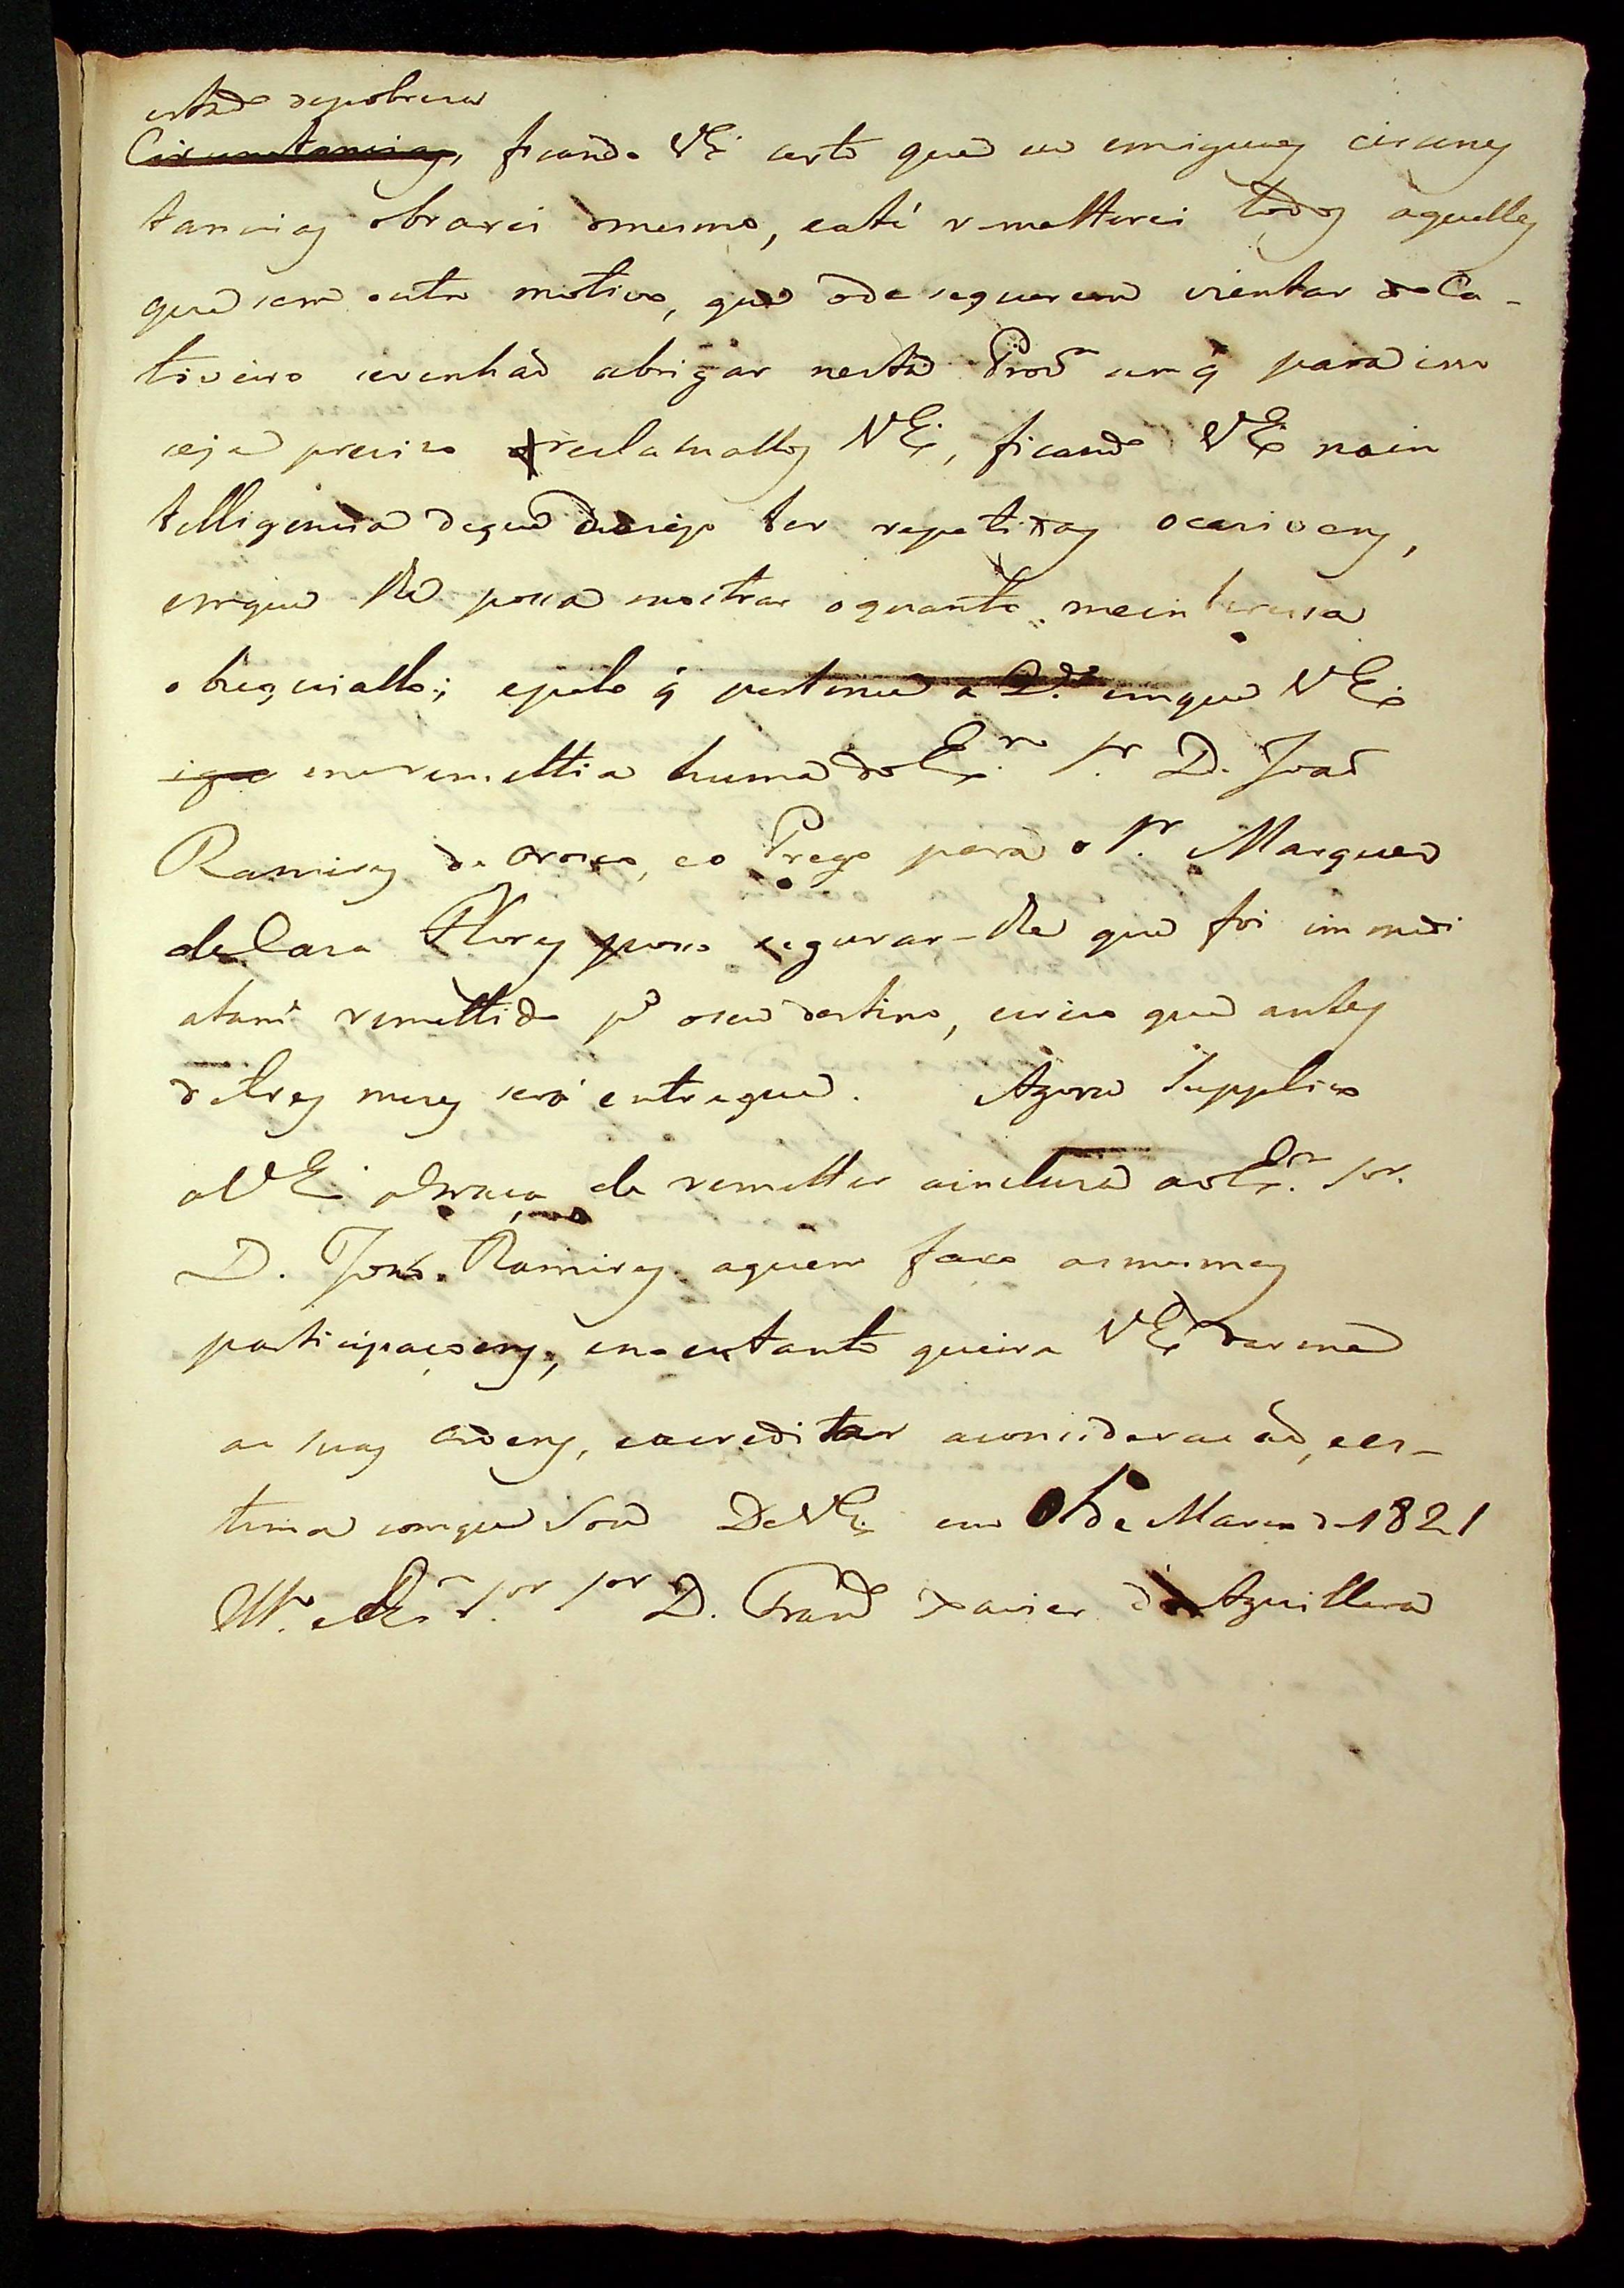 estado depobresa
Circunstancias, ficando VEx certo que eu em iguaes circuns
tancias obrarei omesmo, eaté remetterei todos aquelles
que sem outro motivo, que ode sequererem izentar do Ca-
tiveiro sevenhaõ abrigar nesta Prov.ª sem q̃ para isso
seja preciso reclamallos VEx, ficando VEx nain
telligencia deque dezejo ter repetidas ocasioens,
emque lhe possa mostrar oquanto meinteressa
obsequiallo; epelo q̃ pertence a 2.ª emque VEx
me remettia huma do Ex.mo Sr. D. Joaõ
Ramires de Orosco, eo Prego para o Sr. Marques
de Casa Flores posso segurar-lhe que foi immedi
atam.e remettido p.ª oseu destino, ecreio que antes
de tres mezes será entregue. Agora Supplico
aVEx agraça de remetter ainclusa ao Ex.mo Sr.
D. Joaõ Ramires aquem faco asmesmas
participaçoens, eno entanto queira VEx darme
as suas ordens, eacreditar aconsideracaõ, ees-
tima comque Sou DeVEx em de Marco de 1821
Ill.mo e Ex.mo Sr. Sr. D. Fran.co Xavier de Aguillera